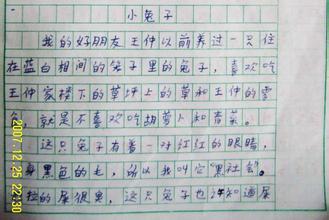 小兔子
我的好朋友王仲以前养过一只住
在蓝白相间的笼子里的兔子，喜欢吃
王仲家楼下的草坪上的草和王仲的零
就是不喜欢吃胡萝卜和青菜。
这只兔子有着一对红红的眼睛，
身黑色的毛，所以我叫它“黑社会”。
拉的屎很臭，这只兔子也
2007.12.25 22:30